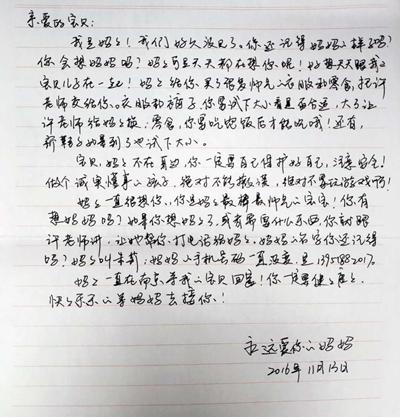 亲爱的宝贝:
我是妈妈!我们好久没见了。你还记得妈妈的样子吗?
你会想妈妈吗?妈妈可是天天都在想你呢!好想天天跟我的
宝贝儿子在一起!妈妈给你买了很多帅气的衣服和零食,托
许老师交给你。衣服和鞋子你要试下大小看是否合适,大了让
许老师给妈妈换,零食,你要吃完饭后才能吃哦!还有,
新鞋子如果到了也试下大小。
宝贝,妈妈不在身边,你一定要自己保护好自己,注意安全!
做个诚实懂事的孩子,绝对不能撒谎,绝对不要玩游戏啊!
妈妈一直很想你,你是妈妈最棒最帅气的宝宝!你有
想妈妈吗?如果你想妈妈了,或者需要什么东西你就跟
许老师讲,让她帮你打电话给妈妈,妈妈的名字你还记得
吗?妈妈叫朱莉,妈妈的手机号码一直没变是
妈妈一直在南京等我的宝贝回家!你一定要健健康康
快快乐乐的等妈妈去接你!
永远爱你的妈妈
2016年11月13日